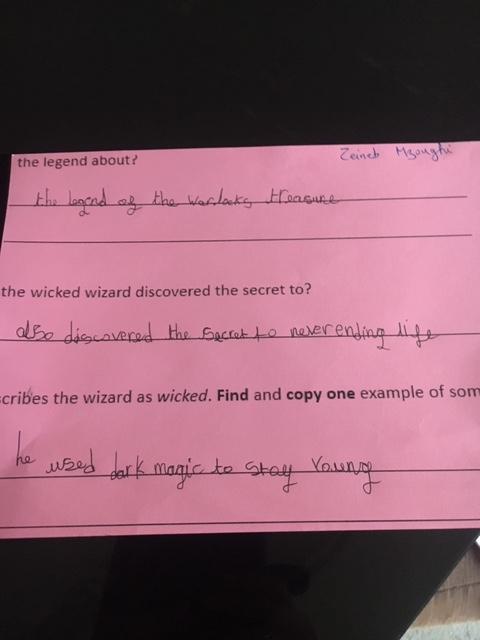 the legend about? Zeineb Mzoughi
the legend of the warlocks treasure
the wicked wizard discovered the secret to?
also discovered the secret to never ending life
cribes the wizard as wicked. Find and copy one example of som
he used dark magic to stay young